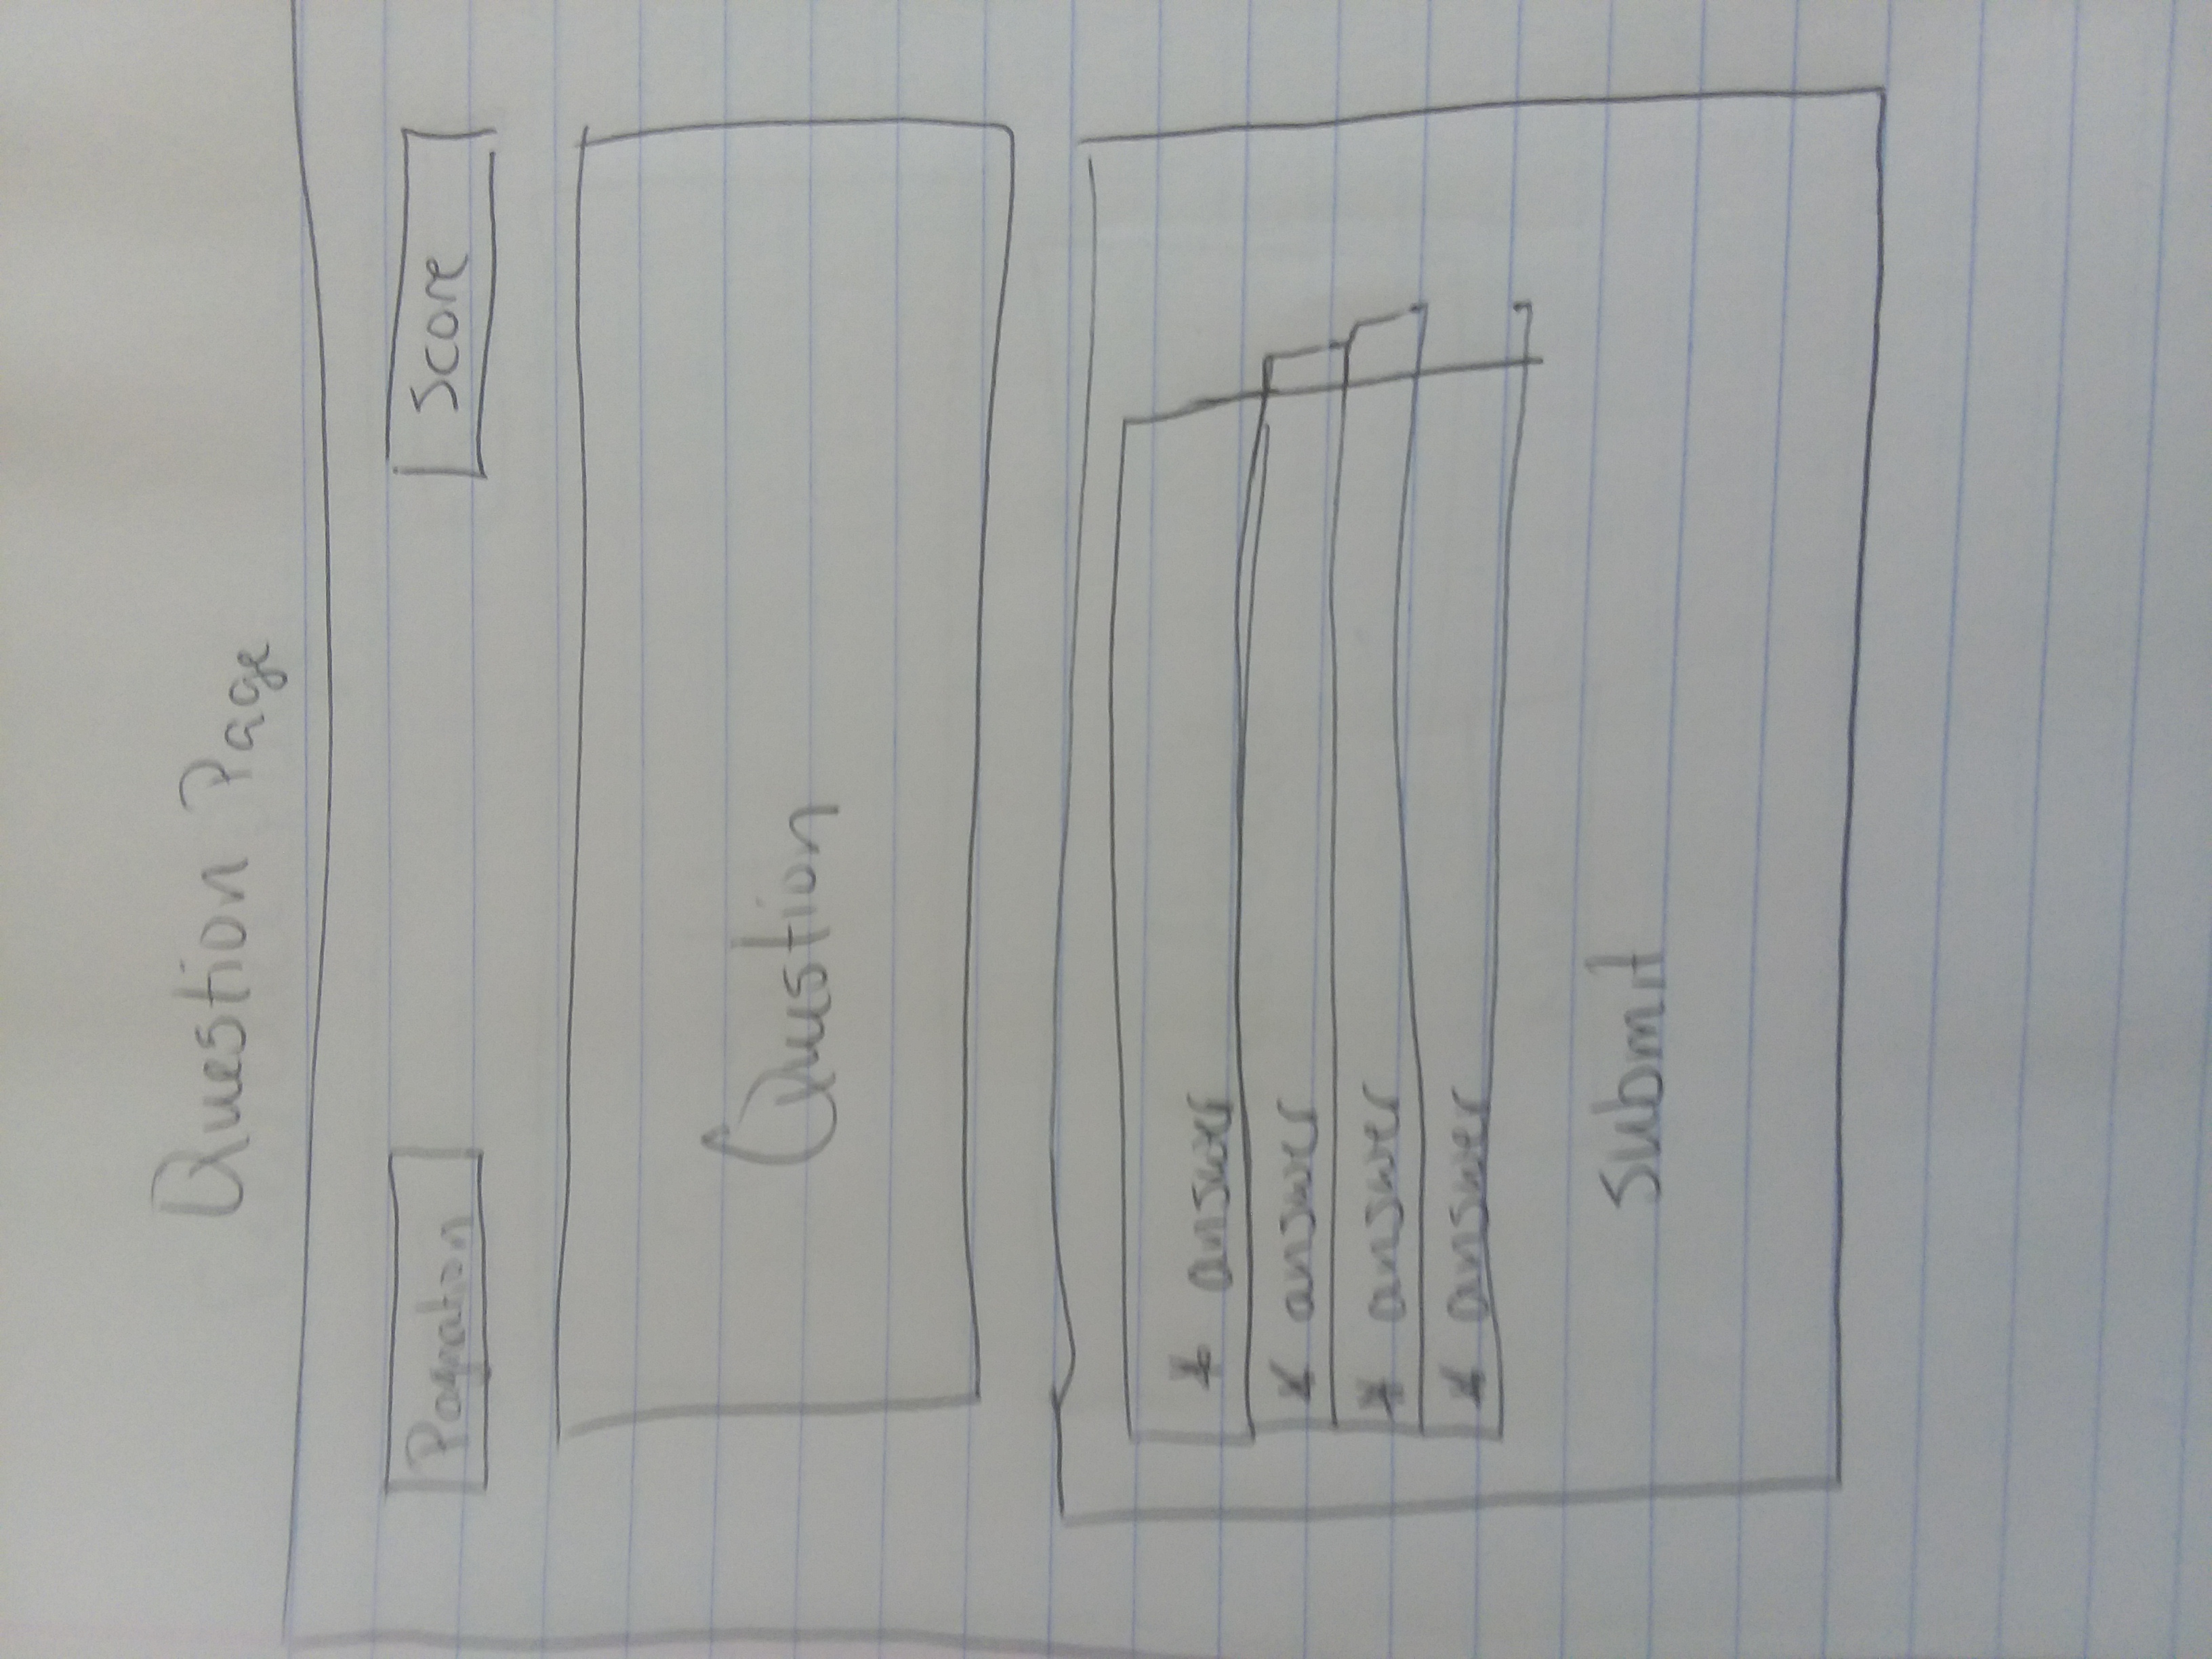 Question Page
Pagnation
Score
Question
* answer
* answer
* answer
* answer
submit